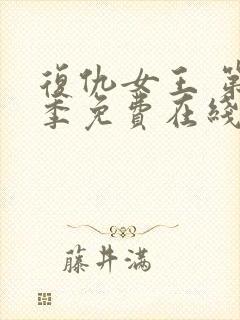 復仇女王 第
季免費在綫
藤井滿